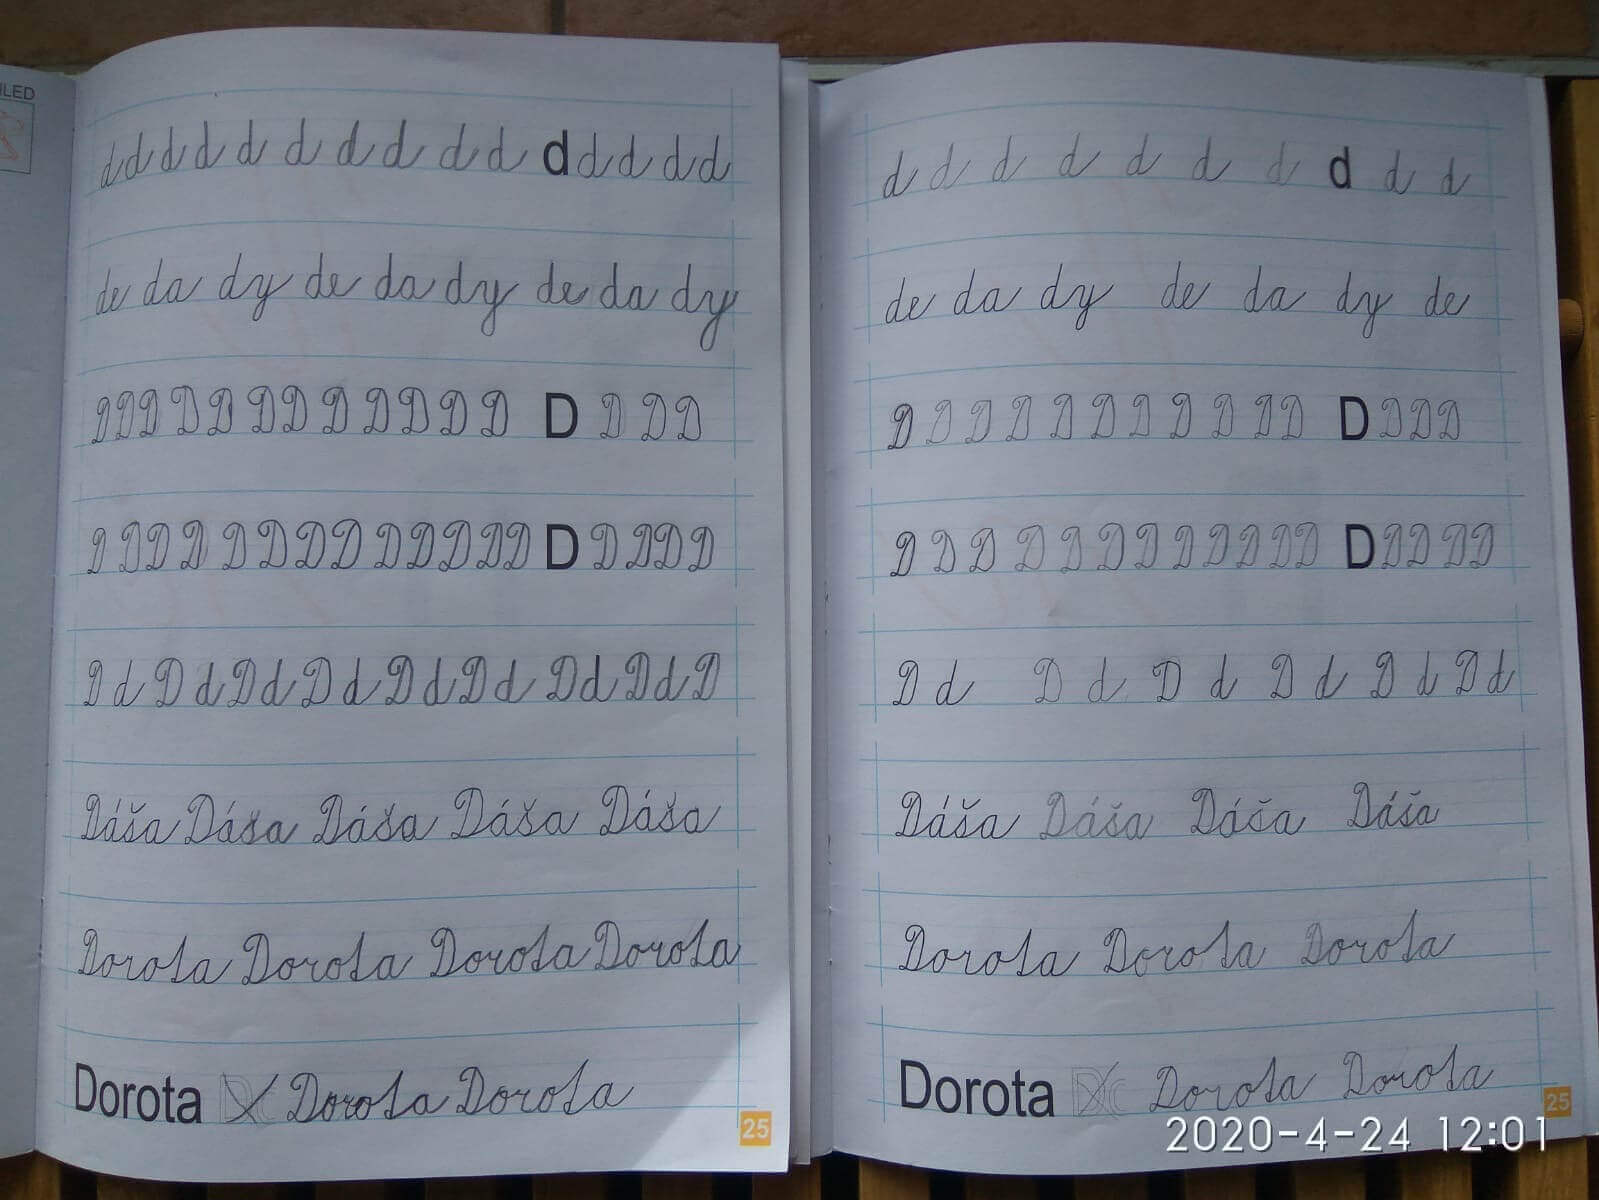 NLED
d d d d d d d d d d d d d d d d
de da dy de da dy de da dy
D D D D D D D D D D D D D D D D
D D D D D D D D D D D D D D D D D
D d D d D d D d D d D d D d D d D
Dáša Dáša Dáša Dáša Dáša
Dorota Dorota Dorota Dorota
Dorota Dorota Dorota
25
d d d d d d d d d d
de da dy de da dy de
D D D D D D D D D D D D D D D
D D D D D D D D D D D D D D D D D
D d D d D d D d D d D d
Dáša Dáša Dáča Dáša
Dorota Dorota Dorota
Dorota Dorota Dorota
25
2020-4-24 12:01